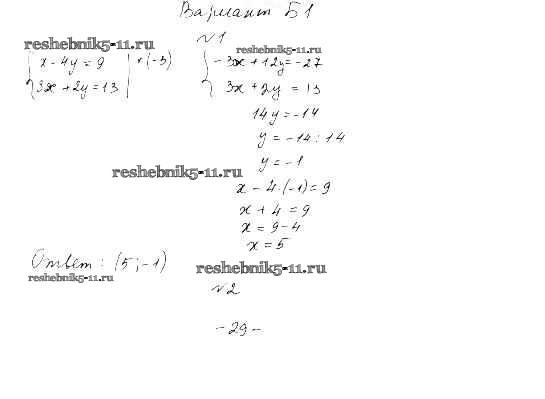 Вариант Б1
№1
reshebnik5-11.ru
reshebnik5-11.ru
x - 4y = 9 | · (-3)
3x + 2y = 13
- 3x + 12y = -27
3x + 2y = 13
14y = -14
y = -14 : 14
y = -1
reshebnik5-11.ru
x - 4·(-1) = 9
x + 4 = 9
x = 9 - 4
x = 5
Ответ: (5; -1)
reshebnik5-11.ru
reshebnik5-11.ru
№2
- 29 -